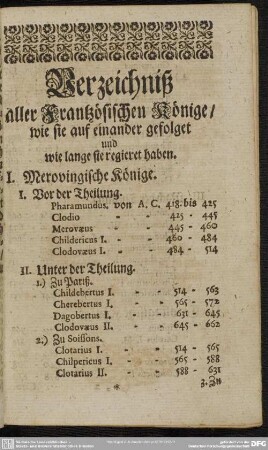 Verzeichniß
aller Frantzösischen Könige/
wie sie auf einander gefolget
und
wie lange sie regieret haben.
I. Merovingische Könige.
I. Vor der Theilung.
Pharamundus, von A. C. 418. bis 425
Clodio - - 425 - 445
Merovæus - - 445 - 460
Childericus I. - - 460 - 484
Clodovæus I. - - 484 - 514
II. Unter der Theilung.
1.) Zu Pariß.
Childebertus I. - - 514 - 563
Cherebertus I. - - 565 - 572
Dagobertus I. - - 631 - 645
Clodovæus II. - - 645 - 662
2.) Zu Soissons.
Clotarius I. - - 514 - 565
Chilpericus I. - - 565 - 588
Clotarius II. - - 588 - 631
* 3. Zu